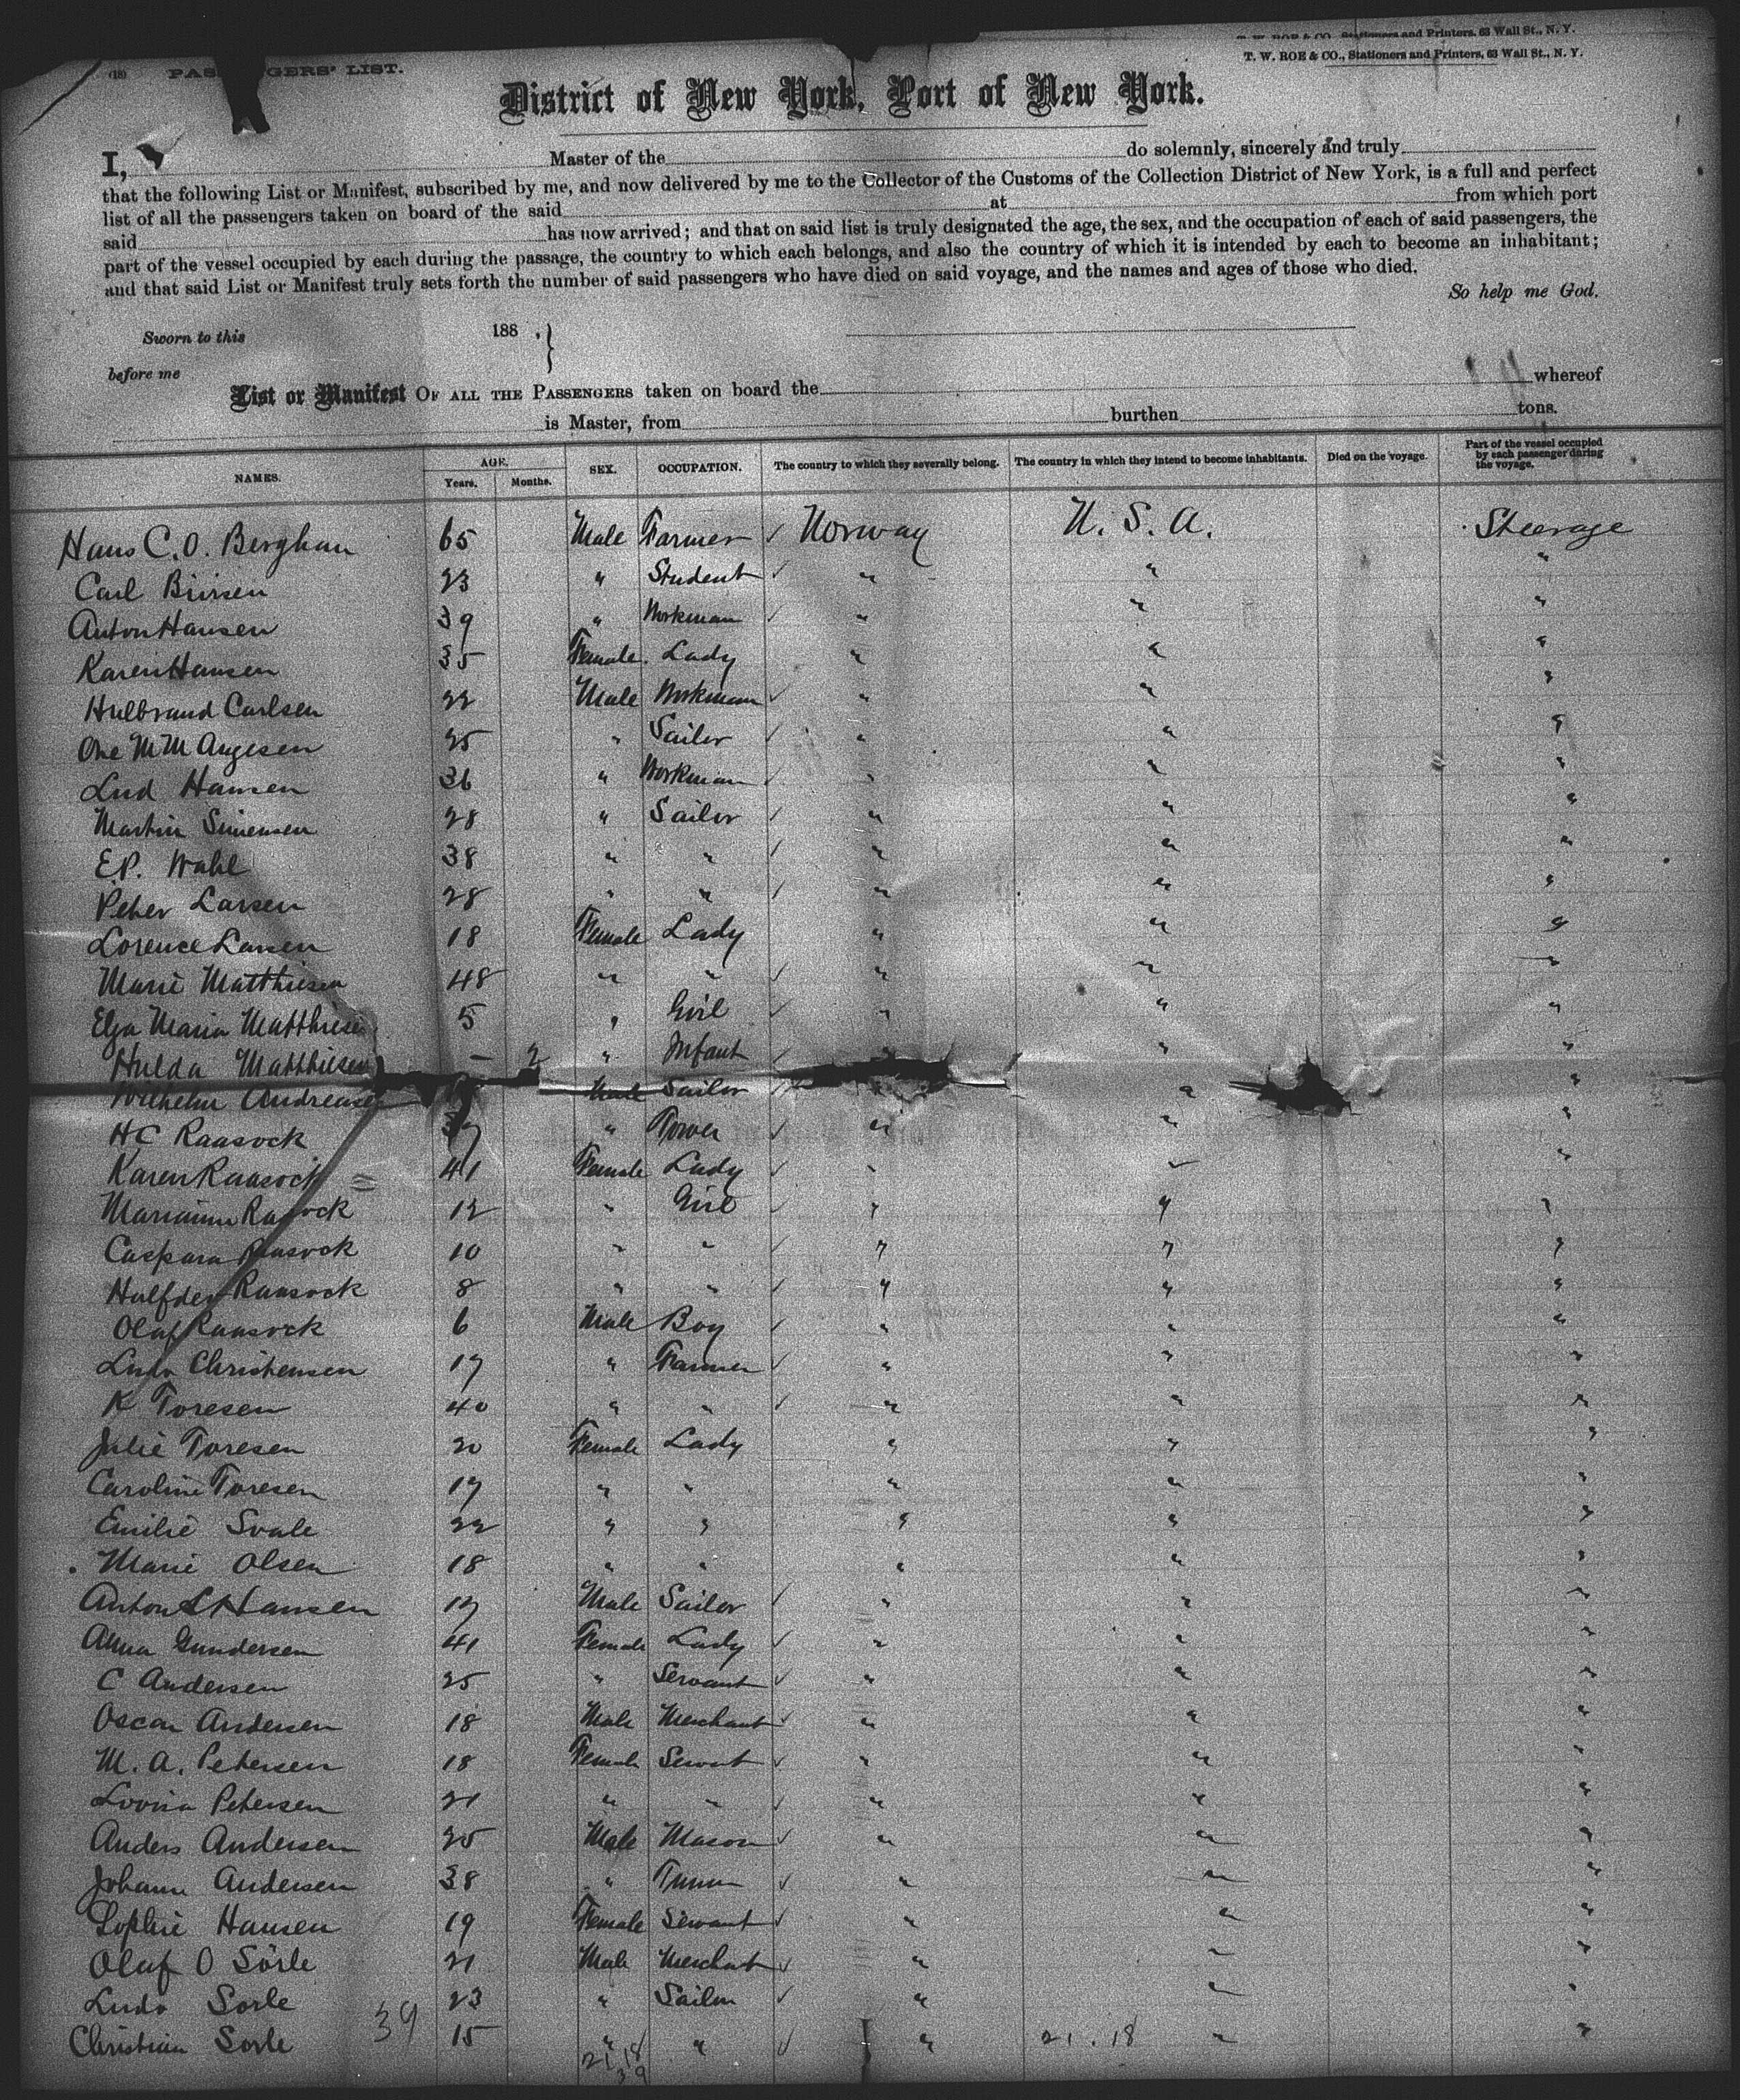 T. W. ROE & CO., Stationers and Printers, 63 Wall St., N. Y.
T. W. ROE & CO., Stationers and Printers, 63 Wall St., N. Y.
(18) PAS GERS' LIST.
District of New York, Port of New York.
I, Master of the do solemnly, sincerely and truly
that the following List or Manifest, subscribed by me, and now delivered by me to the Collector of the Customs of the Collection District of New York, is a full and perfect
list of all the passengers taken on board of the said at from which port
said has now arrived; and that on said list is truly designated the age, the sex, and the occupation of each of said passengers, the
part of the vessel occupied by each during the passage, the country to which each belongs, and also the country of which it is intended by each to become an inhabitant;
and that said List or Manifest truly sets forth the number of said passengers who have died on said voyage, and the names and ages of those who died.
So help me God.
Sworn to this 188 .}
before me
List or Manifest OF ALL THE PASSENGERS taken on board the whereof
is Master, from burthen tons.
NAMES. AGE. Years. Months. SEX. OCCUPATION. The country to which they severally belong. The country in which they intend to become inhabitants. Died on the voyage. Part of the vessel occupied by each passenger during the voyage.
Hans C. O. Berghan 65 Male Farmer ✓ Norway U. S. A. Steerage
Carl 23 " Student ✓ " " "
Anton Hansen 39 " Workman ✓ " " "
Karen Hansen 35 Female Lady " " "
Hulbrand Carlsen 22 Male Workman ✓ " " "
One M M 25 " Sailor ✓ " " "
Lud Hansen 36 " Workman ✓ " " "
Martin Simensen 28 " Sailor ✓ " " "
E.P. Wahl 38 " " ✓ " " "
Peter Larsen 28 " " ✓ " " "
Lorence Larsen 18 Female Lady " " "
Marie Matthiesen 48 " " ✓ " " "
Elza Maria Matthiesen 5 " Girl ✓ " " "
Hulda Matthiesen - 2 " Infant ✓ " " "
Wilhelm Andreasen Male Sailor ✓ " "
H C Raasock " ✓ " " "
Karen Raasock 41 Female Lady ✓ " " "
Marianne Raasock 12 " Girl ✓ " " "
Caspara Raasock 10 " " ✓ " " "
Halfden Raasock 8 " " ✓ " " "
Olaf Raasock 6 Male Boy ✓ " " "
Ludv Christensen 17 " Farmer ✓ " " "
K Toresen 40 " " ✓ " " "
Julie Toresen 20 Female Lady " " "
Caroline Toresen 17 " " " " "
Emilie Svale 22 " " " " "
Marie Olsen 18 " " " " "
Anton L Hansen 17 Male Sailor ✓ " " "
Anna Gundersen 41 Female Lady ✓ " " "
C Andersen 25 " Servant ✓ " " "
Oscar Andersen 18 Male Merchant ✓ " " "
M. A. Petersen 18 Female Servant ✓ " " "
Lovisa Petersen 21 " " ✓ " " "
Anders Andersen 25 Male Mason ✓ " " "
Johann Andersen 38 " ✓ " " "
Sophie Hansen 19 Female Servant ✓ " " "
Olaf O Sörle 21 Male Merchant ✓ " " "
Ludv Sorle 23 " Sailor ✓ " " "
Christian Sorle 39 15 " " ✓ " 21.18 " "
21.18
39